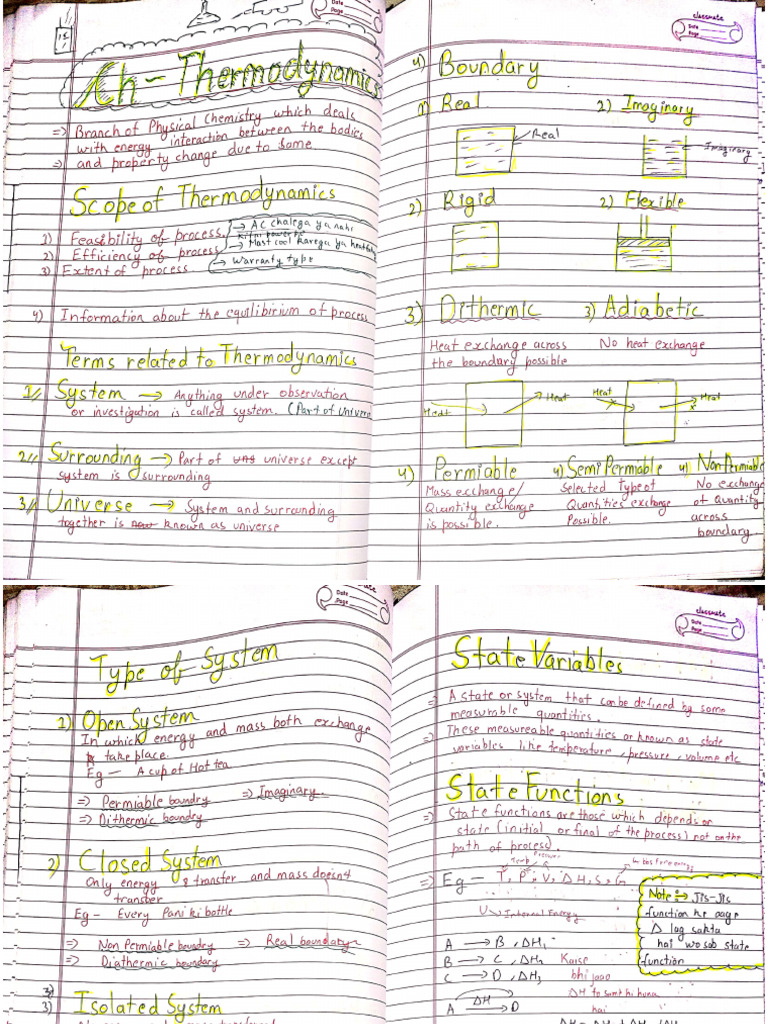 Date
Page
Ch - Thermodynamics
=> Branch of Physical Chemistry which deals
with energy interaction between the bodies
=> and property change due to some
Scope of Thermodynamics
1) Feasibility of process → AC chalega ya nahi
2) Efficiency of process → Mast cool karega ya
3) Extent of process → warranty type
4) Information about the equilibirium of process
Terms related to Thermodynamics
1// System → Anything under observation
or investigation is called system. (Part of universe
2// Surrounding → Part of universe except
system is surrounding
3// Universe → System and surrounding
together is known as universe
classmate
Date
Page
4) Boundary
1) Real 2) Imaginary
Real
Imaginary
2) Rigid 2) Flexible
3) Dithermic 3) Adiabetic
Heat exchange across No heat exchange
the boundary possible
Heat Heat Heat Heat
4) Permiable 4) Semi Permiable 4) Non Permiable
Mass exchange/ Selected type of No exchange
Quantity exchange Quantities exchange of quantity
is possible. Possible. across
boundary
Date
Page
Type of System
1) Open System
In which energy and mass both exchange
take place.
Eg - A cup of Hot tea
=> Permiable boundry => Imaginary.
=> Dithermic boundry
2) Closed System
Only energy transfer and mass doesn't
transfer
Eg - Every Pani ki bottle
=> Non Permiable boundry => Real boundary
=> Diathermic boundary
3)
3) Isolated System
classmate
Date
Page
State Variables
=> A state or system that can be defined by some
measurable quantities.
=> These measureable quantities or known as state
variables like temperature, pressure, volume etc
State Functions
=> State functions are those which depends on
state (initial or final of the process) not on the
path of process.
Temp Pressure Gibbs free energy
=> Eg - T, P, V, ΔH, S, G
U → Internal Energy
Note :=> Jis-Jis
function ke aage
Δ lag sakta
hai wo sab state
function
A → B, ΔH₁
B → C, ΔH₂ Kaise
C → D, ΔH₃ bhi jaao
ΔH ΔH to same hi hona
A → D hai